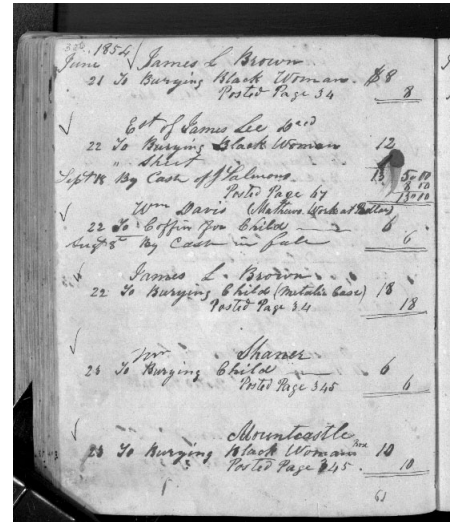 326 1854
June √ James L Brown
21 To Burying Black Woman. $8
Posted Page 34 8
√ Est of James Lee Decd
22 To Burying Black Woman 12
" Shirt
Sept 18 By Cash of J Salmons 13 50 10
Posted Page 67 8 10
13 10
√ Wm Davis (Mathews. Work at Butlers)
22 To Coffin for Child 6
Aug 8th By Cash in full 6
√ James L. Brown
22 To Burying Child (Metalic Case) 18
Posted Page 34 18
√ Mr. Shaner
23 To Burying Child 6
Posted Page 345 6
√ Mountcastle
23 To Burying Black Woman 10
Posted Page 345. 10
61